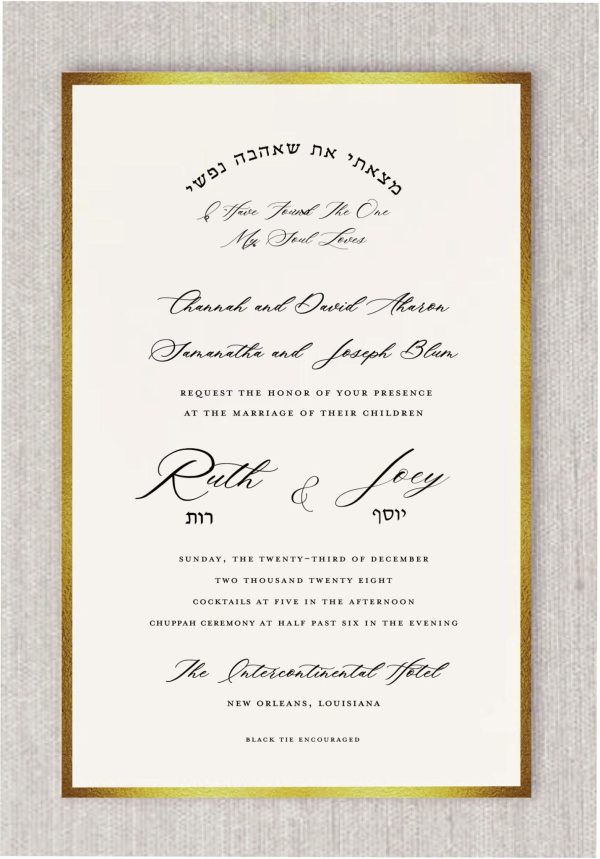 מצאתי את שאהבה נפשי
I Have Found The One
My Soul Loves
Channah and David Aharon
Samanatha and Joseph Blum
REQUEST THE HONOR OF YOUR PRESENCE
AT THE MARRIAGE OF THEIR CHILDREN
Ruth & Joey
רות יוסף
SUNDAY, THE TWENTY-THIRD OF DECEMBER
TWO THOUSAND TWENTY EIGHT
COCKTAILS AT FIVE IN THE AFTERNOON
CHUPPAH CEREMONY AT HALF PAST SIX IN THE EVENING
The Intercontinental Hotel
NEW ORLEANS, LOUISIANA
BLACK TIE ENCOURAGED